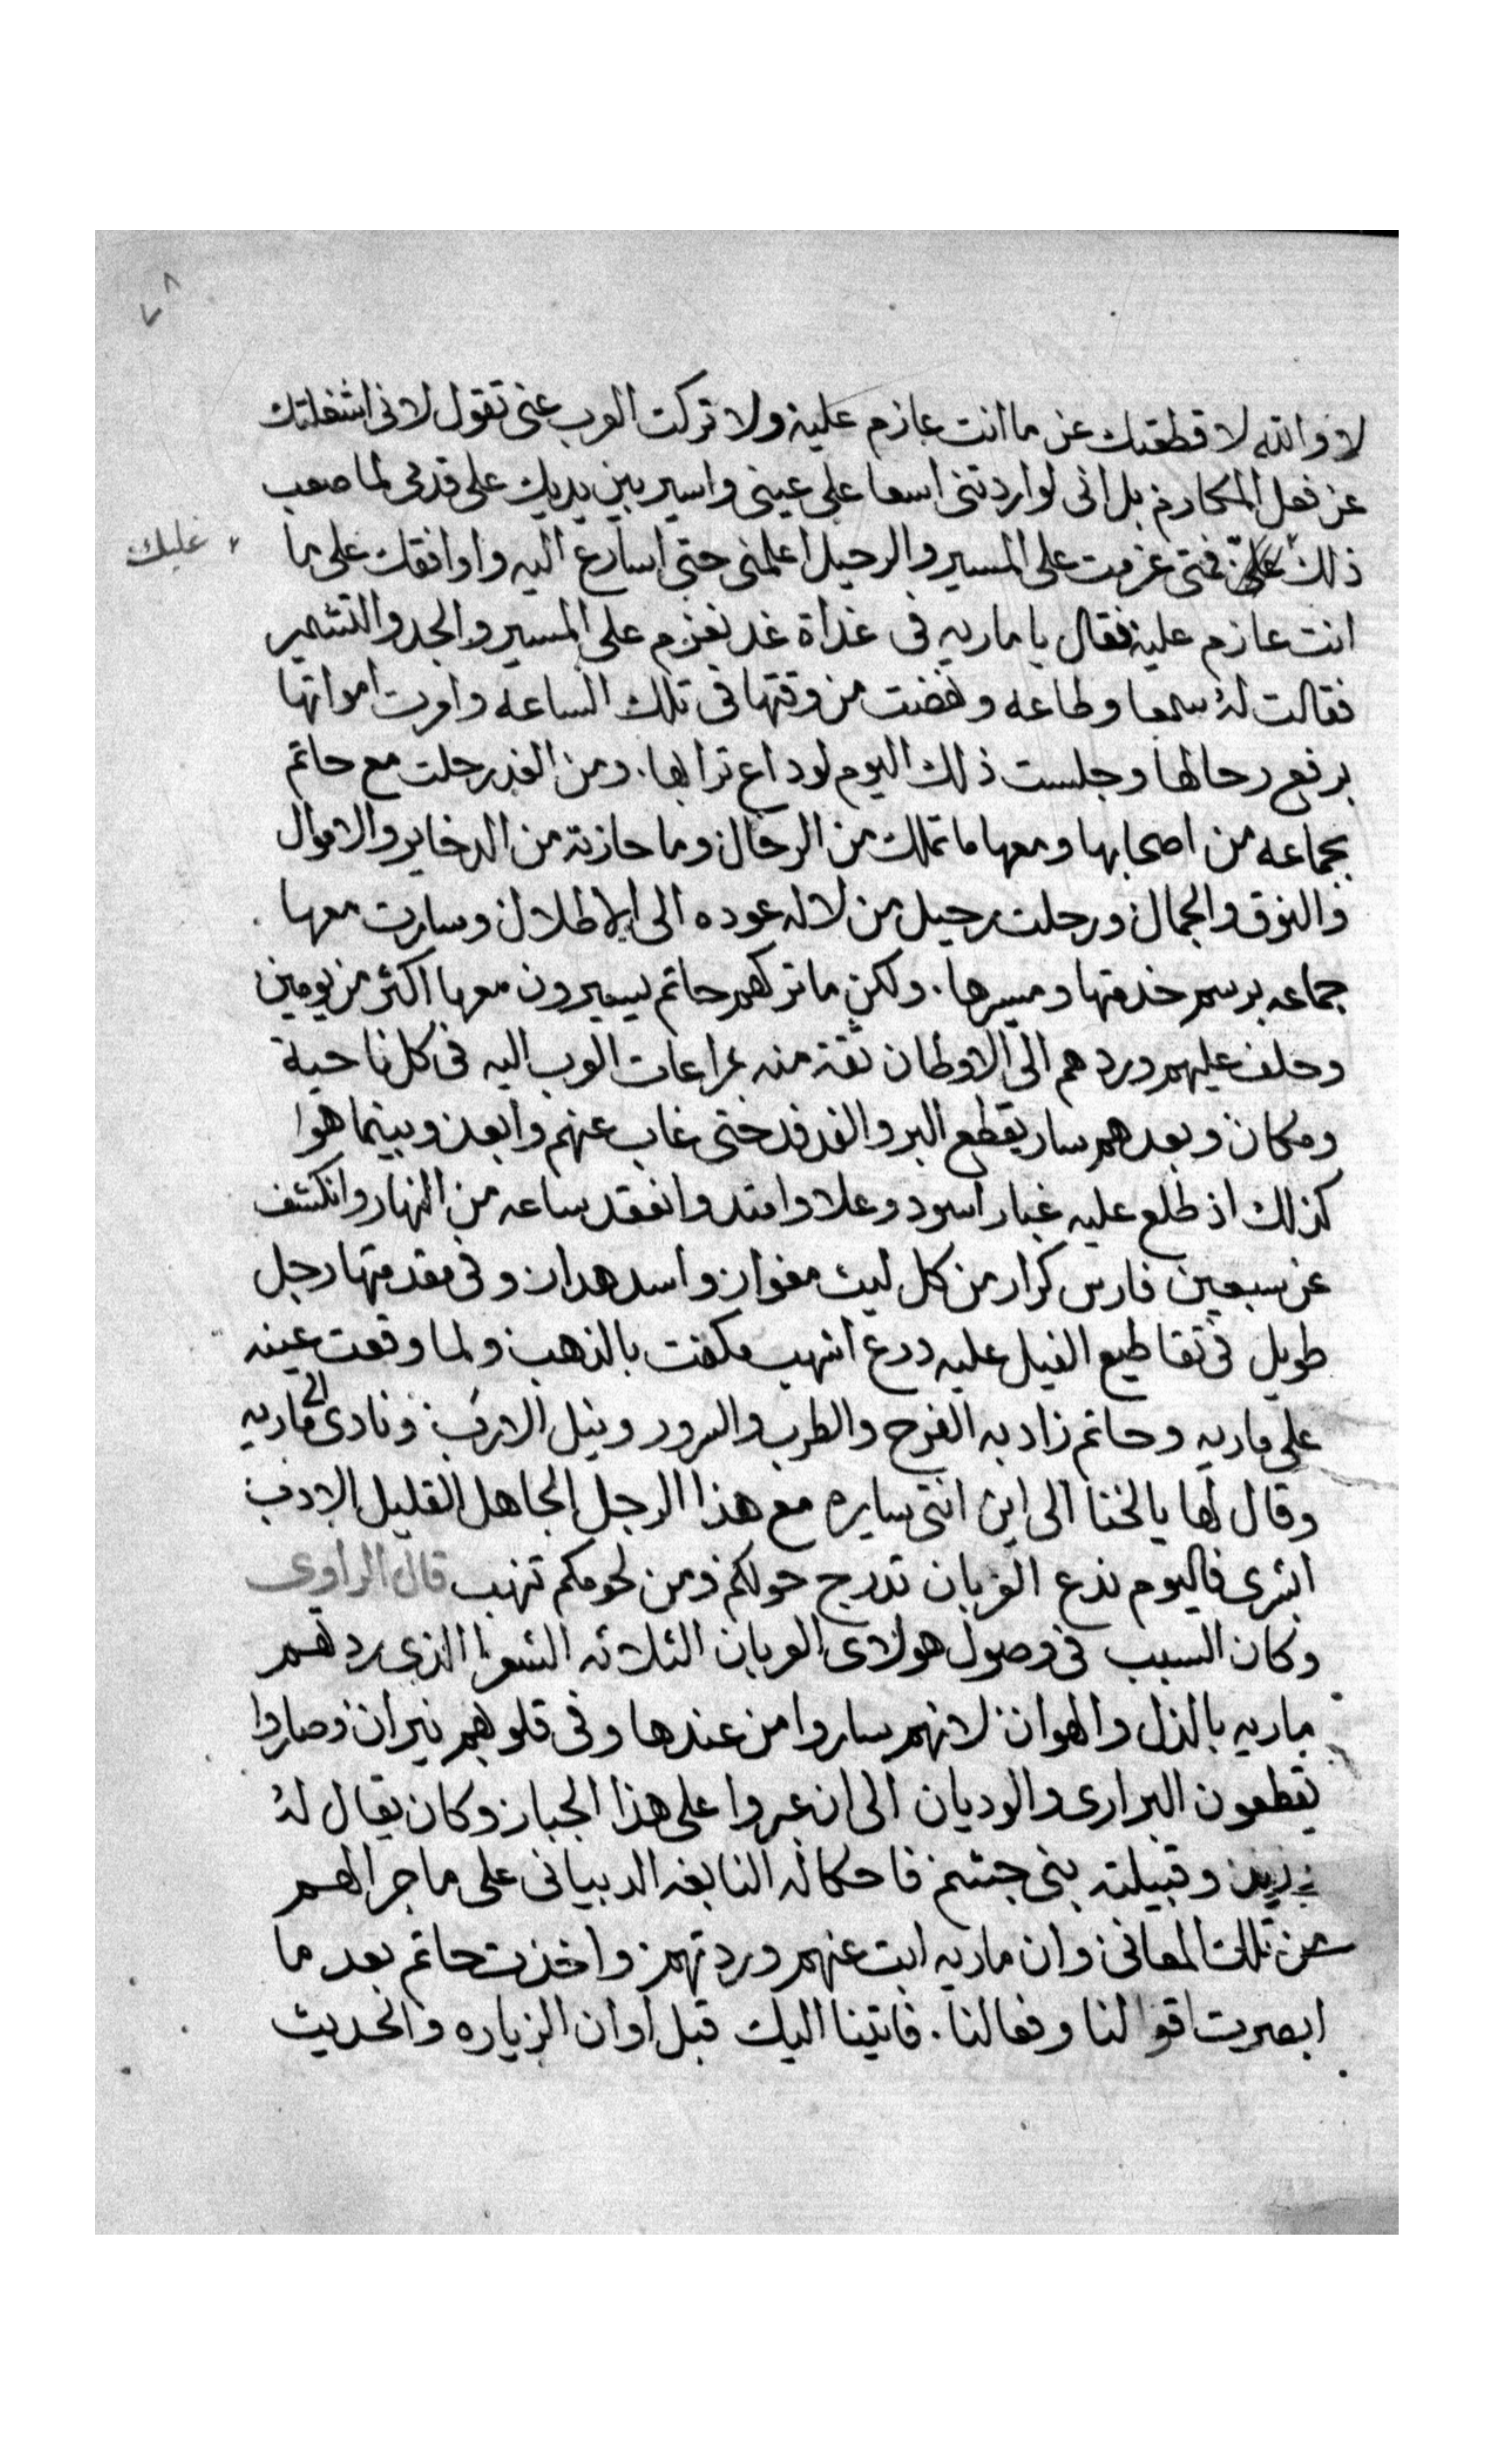 ٧٨
لا والله لا قطعتك عن ما انت عازم عليه ولا تركت العرب عنى تقول لانى اشغلتك
عن فعل المكارم بل انى لو اردتنى اسعا على عينى واسير بين يديك على قدمى لما صعب
ذلك علىّ فمتى عزمت على المسير والرحيل اعلمنى حتى اسارع اليه واوافقك على ما
عليك
انت عازم عليه فقال يا ماريه فى غداة غد نعزم على المسير والجد والتشمير
فقالت له سمعا وطاعه ونهضت من وقتها فى تلك الساعه وامرت امواتها
برفع رحالها وجلست ذلك اليوم لوداع ترابها. ومن الغد رحلت مع حاتم
بجماعه من اصحابها ومعها ما تملك من الرحال وما حازته من الدخاير والاموال
والنوق والجمال ورحلت رحيل من لا له عوده الى الاطلال وسارت معها
جماعه برسم خدمتها ومسيرها. ولكن ما تركهم حاتم يسيرون معها اكثر من يومين
وحلف عليهم وردهم الى الاوطان ثقة منه بمراعات العرب اليه فى كل ناحية
ومكان وبعدهم سار يقطع البر والفدفد حتى غاب عنهم وابعد وبينما هوا
كذلك اذ طلع عليه غبار اسود وعلا وامتد وانعقد ساعه من النهار وانكشف
عن سبعين فارس كرار من كل ليث مغوار واسد هدار وفى مقدمتها رجل
طويل فى تقاطيع الفيل عليه درع اشهب مكفت بالذهب ولما وقعت عينه
على ماريه وحاتم زاد به الفرح والطرب والسرور ونيل الارب ونادى الى ماريه
وقال لها يا لخنا الى اين انتى سايره مع هذا الرجل الجاهل القليل الادب
ابشرى فاليوم ندع الغربان تدرج حولكم ومن لحومكم تنهب قال الراوى
وكان السبب فى وصول هولاى العربان الثلاثه الشعرا الذى ردهم
ماريه بالذل والهوان لانهم ساروا من عندها وفى قلوبهم نيران وصاروا
يقطعون البرارى والوديان الى ان عبروا على هذا الجبار وكان يقال له
وقبيلته بنى جشم فاحكا له النابغه الدبيانى على ما جرا لهم
من تلك المعانى وان ماريه ابت عنهم وردتهم واخذت حاتم بعد ما
ابصرت اقوالنا وفعالنا. فاتينا اليك قبل اوان الزياره والحديث